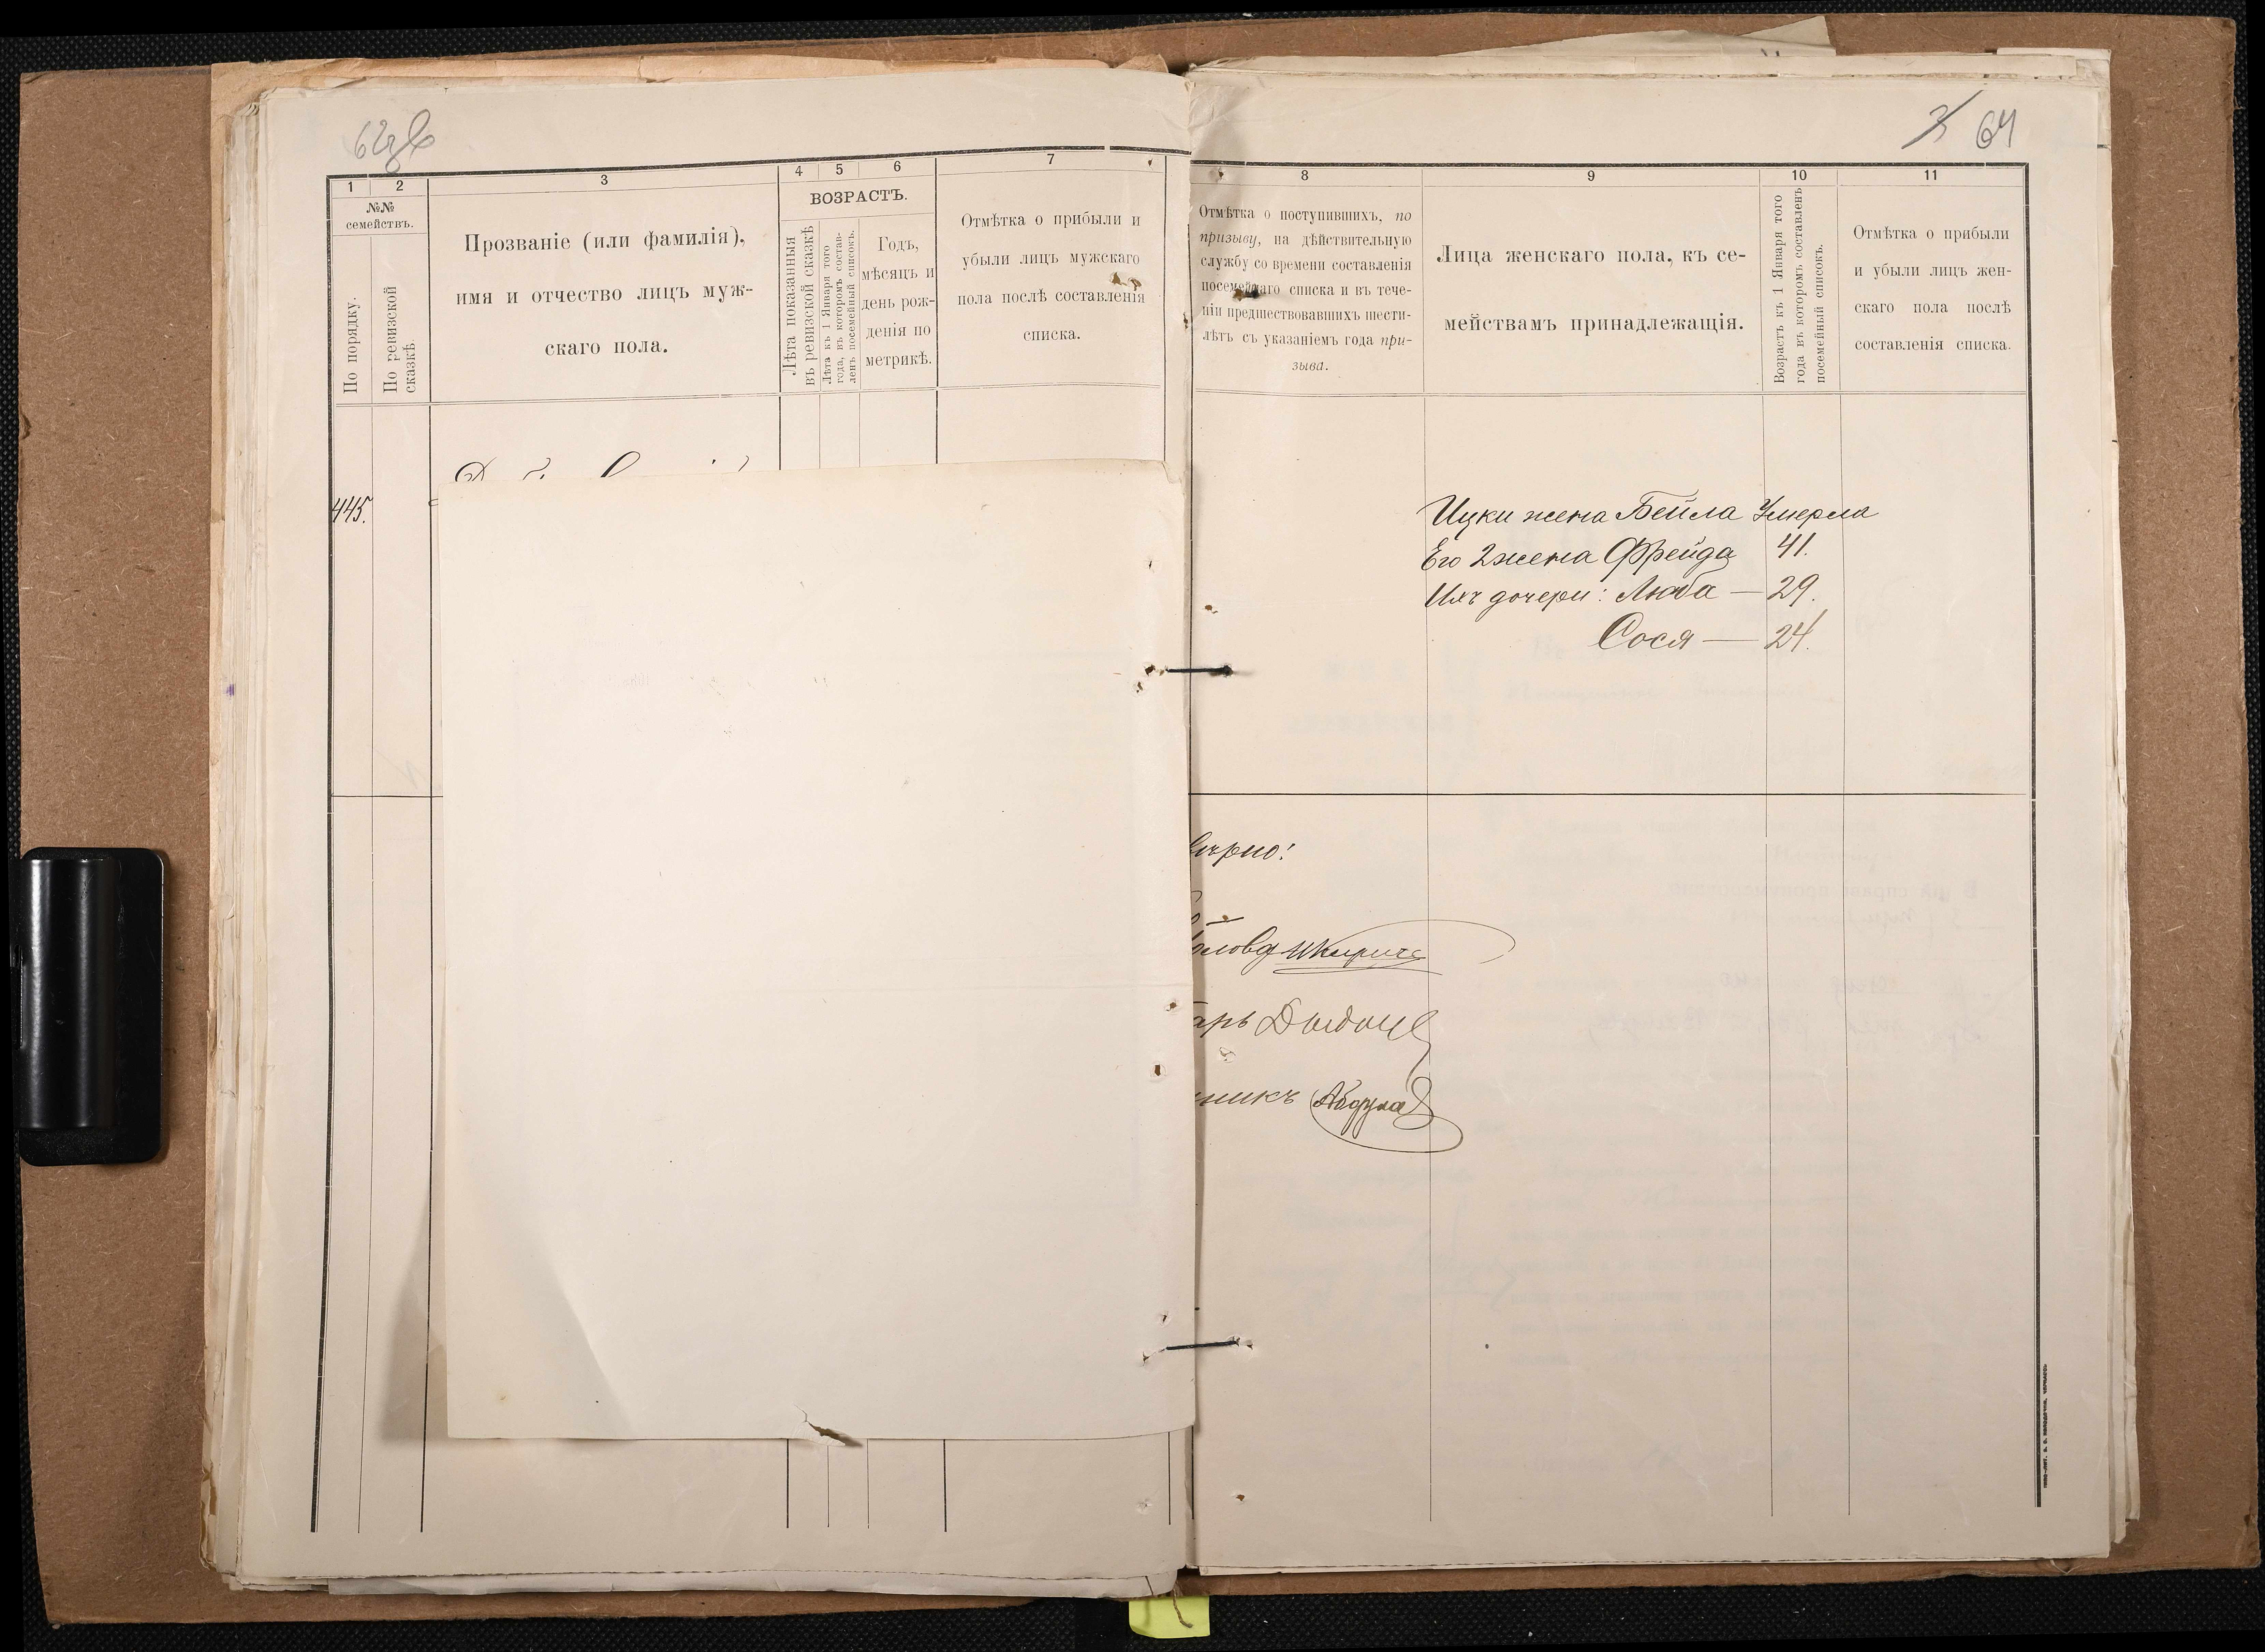 64
1 2 3 4 5 6 7
№№ семействъ.
По порядку.
По ревизской сказкѣ.
Прозваніе (или фамилія),
имя и отчество лицъ муж-
скаго пола.
ВОЗРАСТЪ.
Лѣта показанныя
въ ревизской сказкѣ
Лѣта къ 1 Января того
года, въ которомъ состав-
ленъ посемейный списокъ.
Годъ,
мѣсяцъ и
день рож-
денія по
метрикѣ.
Отмѣтка о прибыли и
убыли лицъ мужскаго
пола послѣ составленія
списка.
445.
8 9 10 11
Отмѣтка о поступившихъ, по
призыву, на дѣйствительную
службу со времени составленія
посемейнаго списка и въ тече-
ніи предшествовавшихъ шести-
лѣтъ съ указаніемъ года при-
зыва.
Лица женскаго пола, къ се-
мействамъ принадлежащія.
Возрастъ къ 1 Января того
года въ которомъ составленъ
посемейный списокъ.
Отмѣтка о прибыли
и убыли лицъ жен-
скаго пола послѣ
составленія списка.
Ицки жена Бейла Умерла
Его 2 жена Фрейда 41.
Ихъ дочери: Люба — 29.
Сося — 24.
вѣрно!
арь
никъ